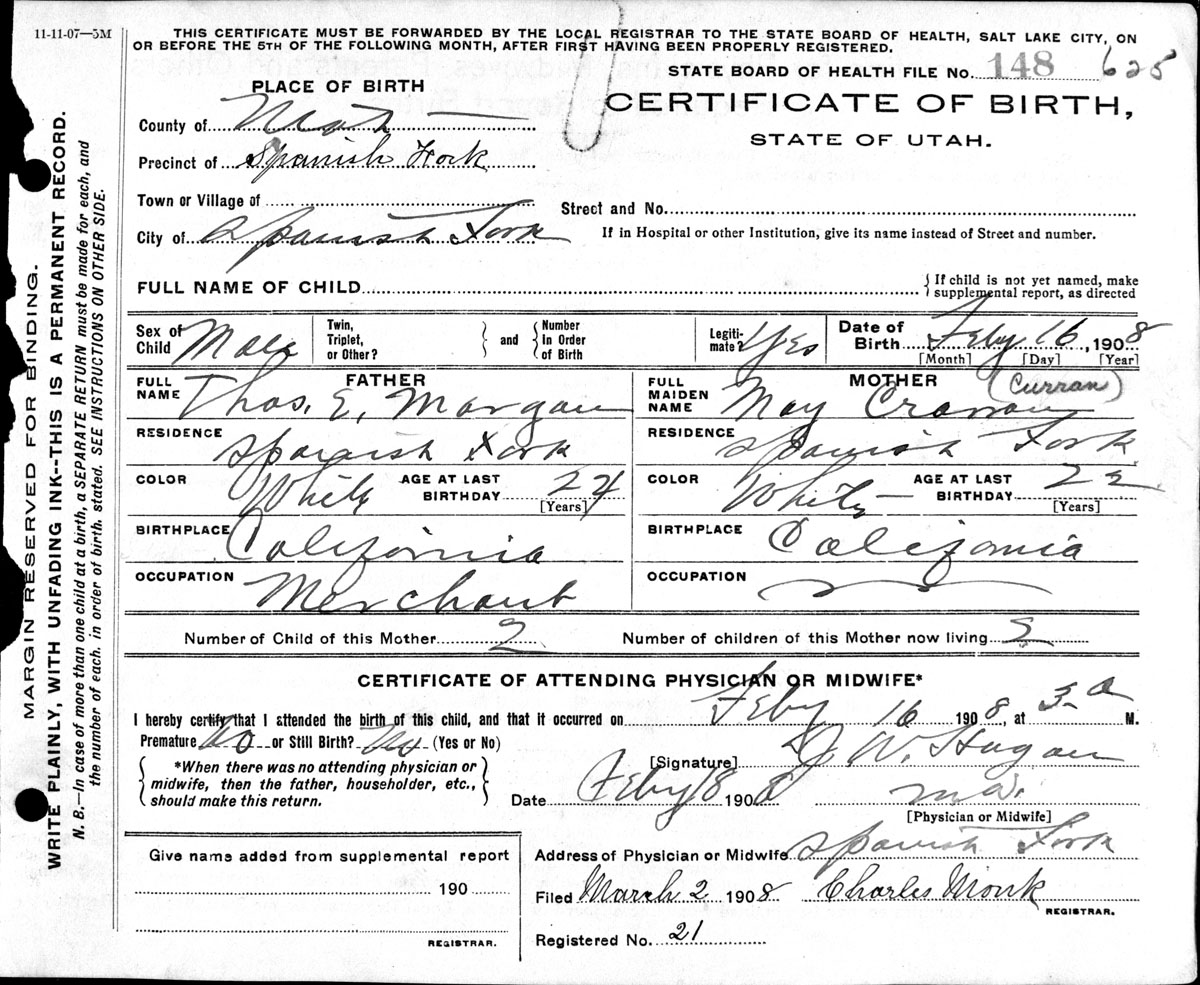 11-11-07—5M
THIS CERTIFICATE MUST BE FORWARDED BY THE LOCAL REGISTRAR TO THE STATE BOARD OF HEALTH, SALT LAKE CITY, ON
OR BEFORE THE 5TH OF THE FOLLOWING MONTH, AFTER FIRST HAVING BEEN PROPERLY REGISTERED.
STATE BOARD OF HEALTH FILE No. 148 625
PLACE OF BIRTH
CERTIFICATE OF BIRTH,
STATE OF UTAH.
County of Utah
Precinct of Spanish Fork
Town or Village of
Street and No.
City of Spanish Fork
If in Hospital or other Institution, give its name instead of Street and number.
FULL NAME OF CHILD
{ If child is not yet named, make
supplemental report, as directed
Sex of Child Male
Twin, Triplet, or Other? } and { Number In Order of Birth
Legitimate? Yes
Date of Birth Feby 16, 1908
[Month] [Day] [Year]
FATHER
MOTHER (Curran)
FULL NAME Thos. E. Morgan
FULL MAIDEN NAME May
RESIDENCE Spanish Fork
RESIDENCE Spanish Fork
COLOR White AGE AT LAST BIRTHDAY 24 [Years]
COLOR White AGE AT LAST BIRTHDAY 22 [Years]
BIRTHPLACE California
BIRTHPLACE California
OCCUPATION Merchant
OCCUPATION
Number of Child of this Mother 2
Number of children of this Mother now living 2
CERTIFICATE OF ATTENDING PHYSICIAN OR MIDWIFE*
I hereby certify that I attended the birth of this child, and that it occurred on Feby 16 1908, at 3 a M.
Premature No or Still Birth? No (Yes or No)
*When there was no attending physician or
midwife, then the father, householder, etc.,
should make this return.
[Signature] J. W. Hagan
Date Feby 18 1908 M.D.
[Physician or Midwife]
Give name added from supplemental report
190
REGISTRAR.
Address of Physician or Midwife Spanish Fork
Filed March 2 1908 Charles Monk
REGISTRAR.
Registered No. 21
MARGIN RESERVED FOR BINDING.
WRITE PLAINLY, WITH UNFADING INK--THIS IS A PERMANENT RECORD.
N. B.—In case of more than one child at a birth, a SEPARATE RETURN must be made for each, and
the number of each, in order of birth, stated. SEE INSTRUCTIONS ON OTHER SIDE.